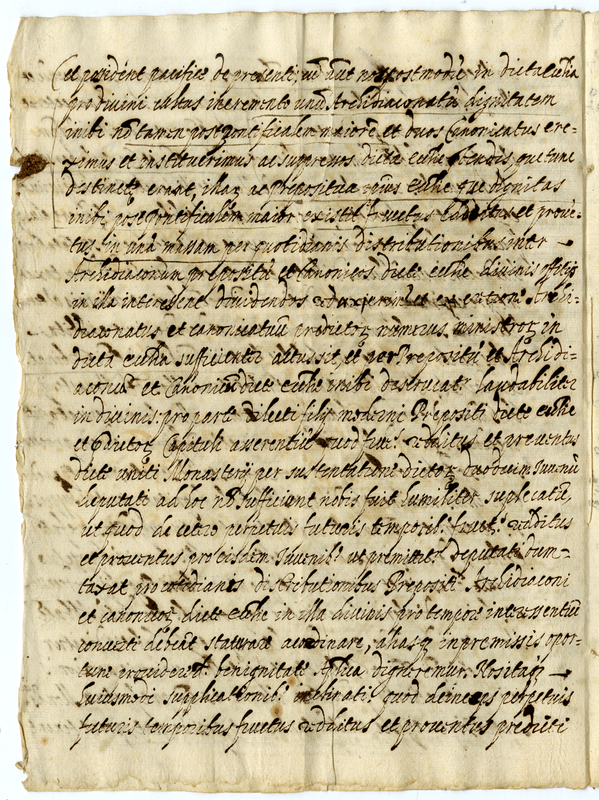 et possident pacifice de presenti vel unt nos postmodu in dicta ecctia
pro divini cultus incremento unu Archidiaconatu dignitatem
inibi no tamen post pontificalem maiore et duos Canonicatus ere=
ximus et instituerimus ac suprema dicta ecctie que tunc
destinet erant, illarq ac Prepositura eius Ecctie que dignitas
inibi post Pontificalem maior existit fructus redditus et prove=
tus in una massam per quotidianis distributionibus inter
Archidiaconum prepositu et Canonicos dicte ecctie divinis officijs
in illa interessent dividendos et erectione Archi=
diaconatus et canonicatuu predictoz numerus ministroz in
dicta ecctia sufficienter auctus sit, et per Prepositu et Archidi=
aconu et Canonicu dicte ecctie inibi deservat laudabiliter
in divinis: pro parte dilecti filij moderni Prepositi dicte ecctie
et predictoz Capituli asserentiu quod fruct redditus et proventus
dicte uniti Monasterij per sustentatione dictoz duodecim Juvenu
deputati ad hoc no sufficiunt nobis fuit humiliter suplicatu,
ut quod de cetero perpetuis futuris temporib fruct redditus
et proventus pro eisdem Juvenib ut premittit deputati dum=
taxat pro cotidianis distributionibus Prepositi Archidiaconi
et canonicoz dicte Ecctie in illa divinis pro tempore interessentiu
converti debeat statuere ac ordinare, aliasq in premissis opor=
tune providere de benignitate Aplica dignaremur. Nos itaq
huiusmodi supplicationib inclinati quod deinceps perpetuis
futuris temporibus fructus redditus et proventus predicti